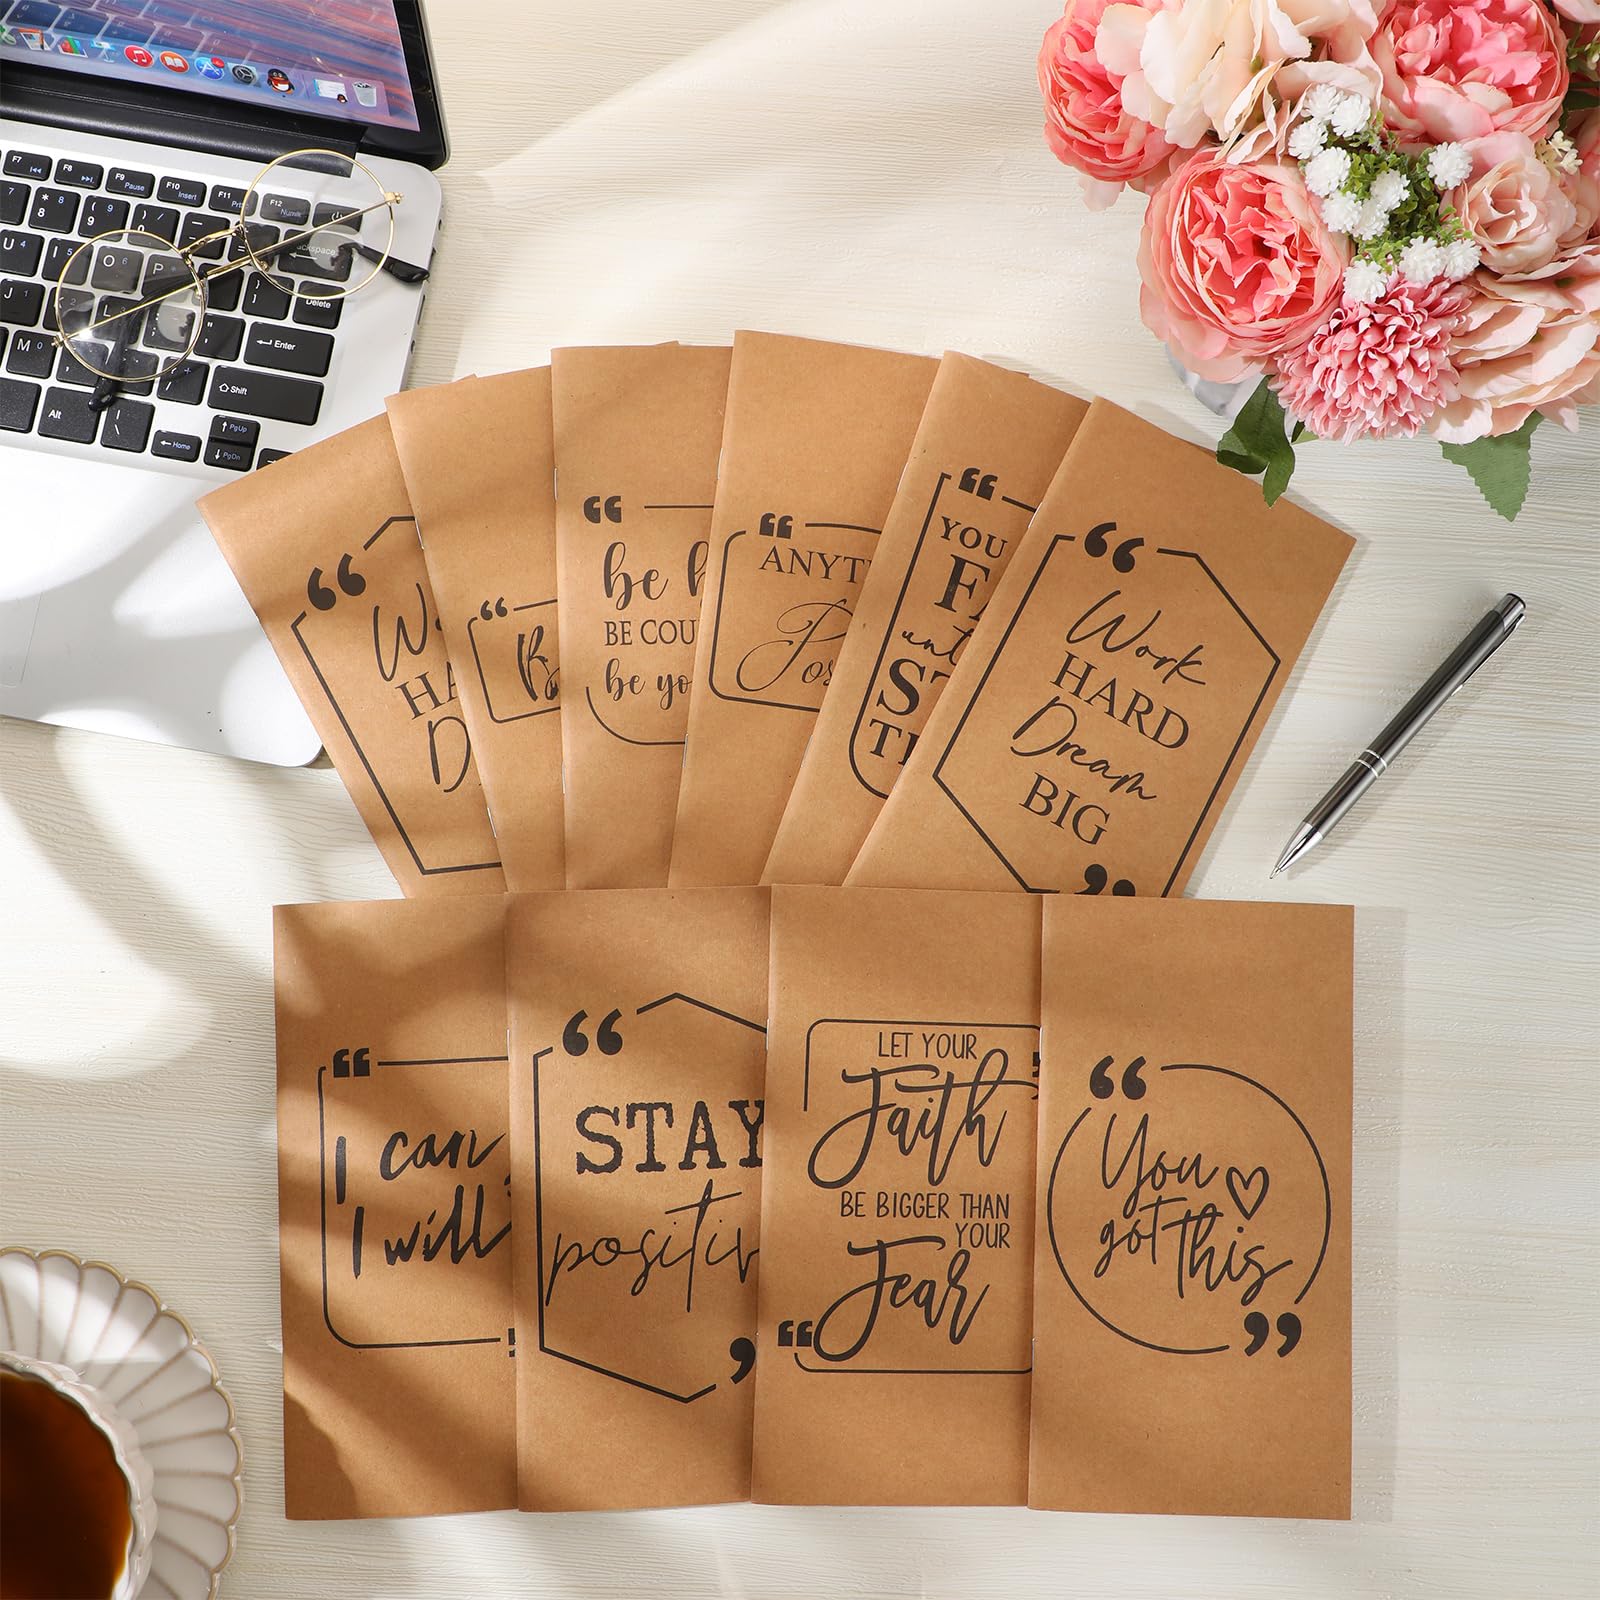 F7
F8
F9
Pause
F10
Insert
F11
F12
Numlk
7
8
9
U
I
O
P
J
L
M
Backspace
Delete
Enter
Shift
Alt
Home
PgUp
PgDn
“
W
HA
D
“
B
“
be
BE COU
be yo
“
ANYT
Pos
“
YOU
FA
unt
ST
TH
“
Work
HARD
Dream
BIG
”
“
I can
I will
”
“
STAY
positiv
”
LET YOUR
Faith
BE BIGGER THAN
YOUR
Fear
“
“
You
got this
”